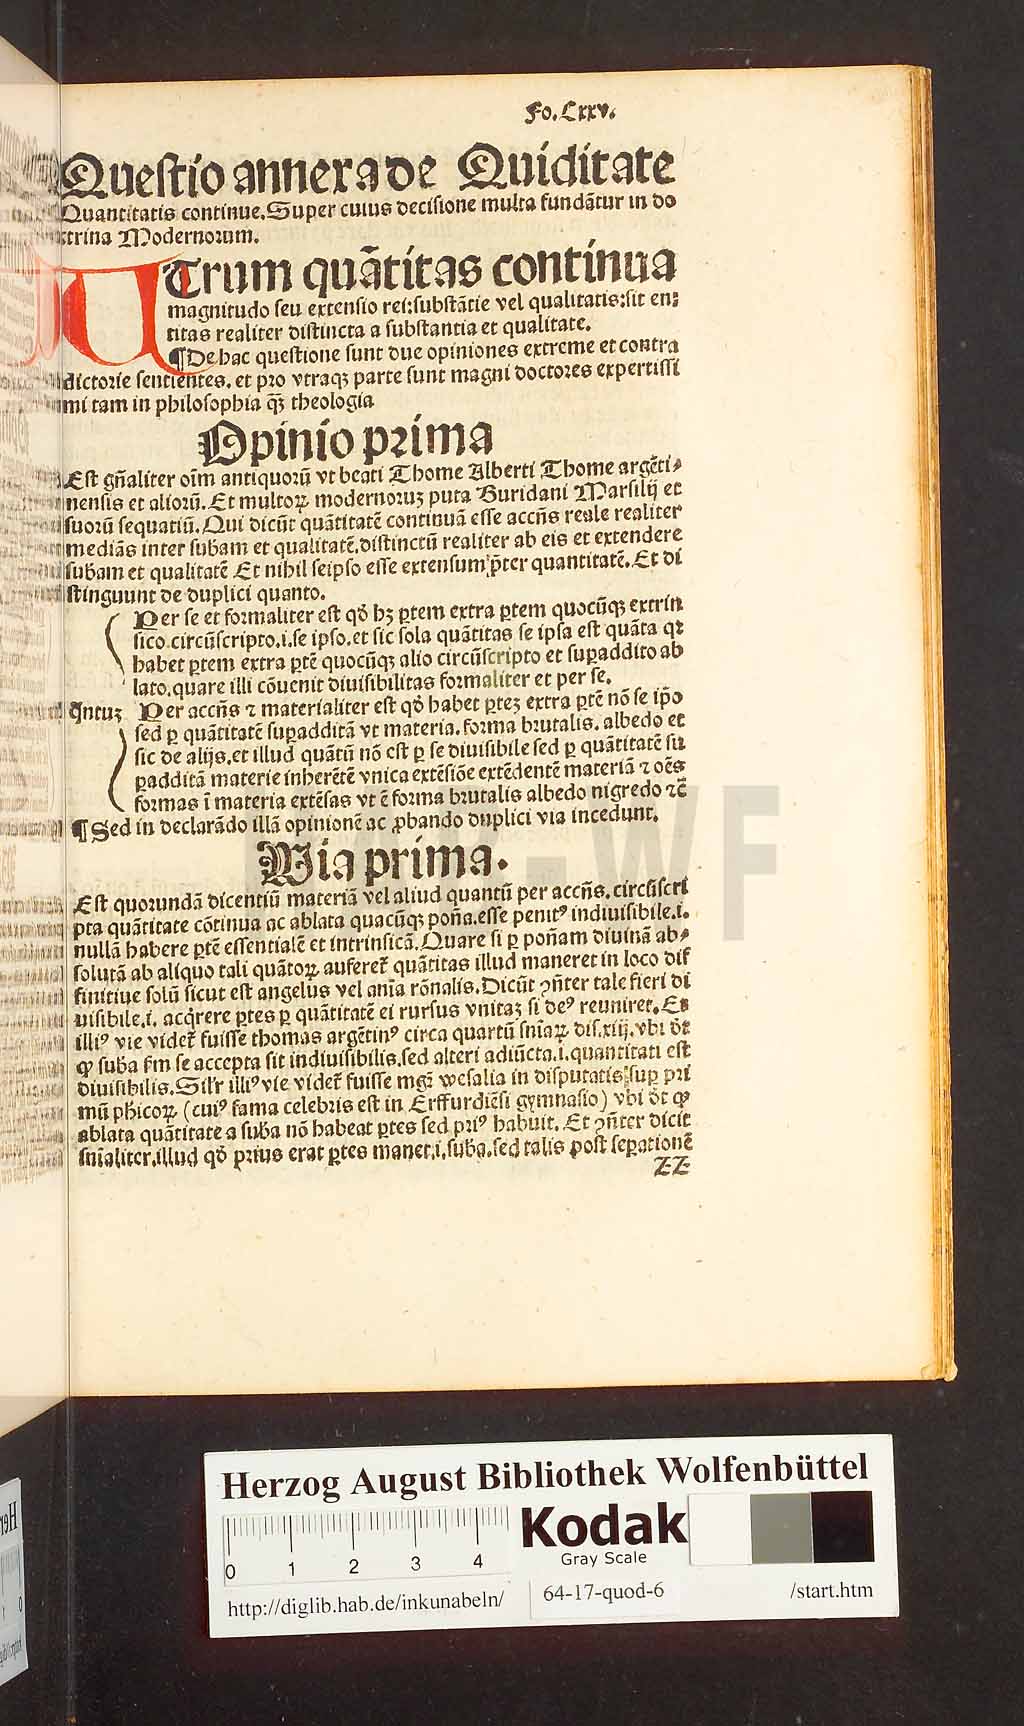 Fo. Lxxv.
Questio annexa de Quiditate
Quantitatis continue. Super cuius decisione multa fundātur in do
ctrina Modernorum.
UTrum quātitas continua
magnitudo seu extensio rei: substātie vel qualitatis: sit en⸗
titas realiter distincta a substantia et qualitate.
¶ De hac questione sunt due opiniones extreme et contra
dictorie sentientes. et pro vtraqꝫ parte sunt magni doctores expertissi
mi tam in philosophia qꝫ̄ theologia
Opinio prima
Est gn̄aliter oīm antiquorū vt beati Thome Alberti Thome argēti⸗
nensis et aliorū. Et multoꝝ modernoruꝫ puta Buridani Marsilij et
suorū sequatiū. Qui dicūt quātitatē continuā esse accn̄s reale realiter
mediās inter subam et qualitatē. distinctū realiter ab eis et extendere
subam et qualitatē Et nihil seipso esse extensum p̄ter quantitatē. Et di
stinguunt de duplici quanto.
Per se et formaliter est qď hꝫ ꝑtem extra ꝑtem quocūqꝫ extrin
sico circūscripto. i. se ipso. et sic sola quātitas se ipsa est quāta qꝛ
habet ꝑtem extra ꝑtē quocūqꝫ alio circūscripto et suꝑaddito ab
lato. quare illi cōuenit diuisibilitas formaliter et per se.
q̄ntuꝫ Per accn̄s ⁊ materialiter est qď habet ꝑteꝫ extra ꝑtē nō se ip̄o
sed ꝑ quātitatē suꝑadditā vt materia. forma brutalis. albedo et
sic de alijs. et illud quātū nō est ꝑ se diuisibile sed ꝑ quātitatē su
ꝑadditā materie inherētē vnica extēsiōe extēdentē materiā ⁊ oēs
formas ī materia extēsas vt ē forma brutalis albedo nigredo ⁊c̄
¶ Sed in declarādo illā opinionē ac ꝓbando duplici via incedunt.
Via prima.
Est quorundā dicentiū materiā vel aliud quantū per accn̄s. circūscri
pta quātitate cōtinua ac ablata quacūqꝫ poñ̄a. esse penitꝰ indiuisibile. i.
nullā habere ꝑtē essentialē et intrinsicā. Quare si ꝑ poñam diuinā ab⸗
solutā ab aliquo tali quātoꝝ auferet̄ quātitas illud maneret in loco dif
finitiue solū sicut est angelus vel anīa rōnalis. Dicūt ꝯn̄ter tale fieri di
uisibile. i. acq̄rere ꝑtes ꝑ quātitatē ei rursus vnitaꝫ si deꝰ reuniret. Et
illiꝰ vie videt̄ fuisse thomas argētinꝰ circa quartū sn̄iaꝝ dis. xiij. vbi dr̄
ꝙ suba ẜm se accepta sit indiuisibilis. sed alteri adiūcta. i. quantitati est
diuisibilis. Sil'r illiꝰ vie videt̄ fuisse mgr̄ wesalia in disputatis suꝑ pri
mū ph̄icoꝝ (cuiꝰ fama celebris est in Erffurdiēsi gymnasio) vbi dt̄ ꝙ
ablata quātitate a suba nō habeat ꝑtes sed priꝰ habuit. Et ꝯn̄ter dicit
sn̄ialiter. illud qď prius erat ꝑtes manet. i. suba. sed talis post seꝑationē
ZZ
HAB-WF
Herzog August Bibliothek Wolfenbüttel
0 1 2 3 4
Kodak
Gray Scale
http://diglib.hab.de/inkunabeln/ 64-17-quod-6 /start.htm